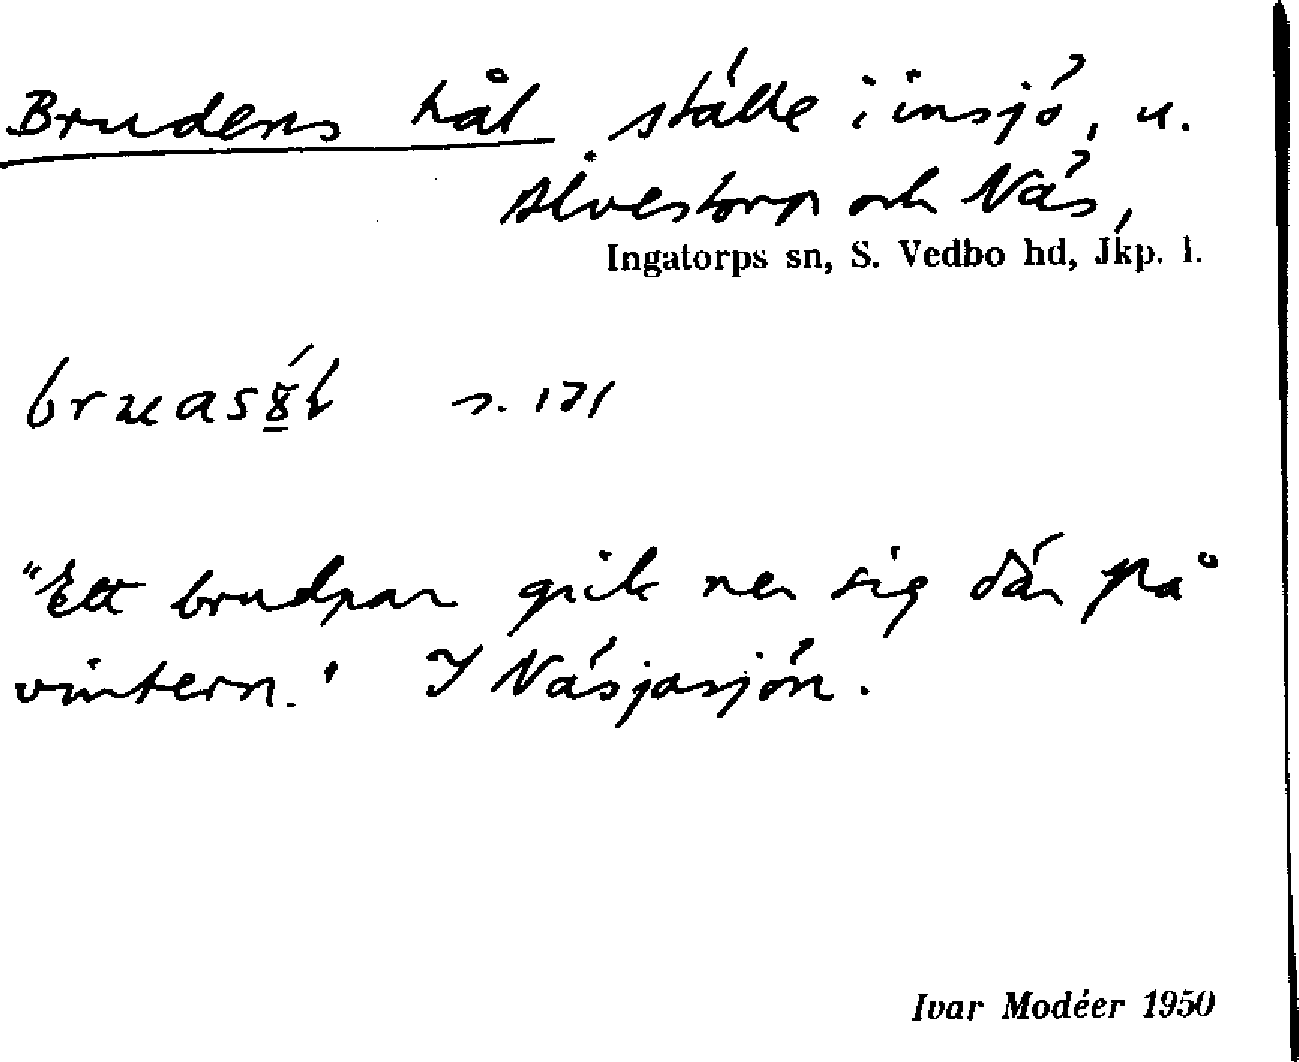 Brudens hål ställe i insjö, u.
Älvestorp och Näs,
Ingatorps sn, S. Vedbo hd, Jkp. l.
s. 171
"Ett brudpar gick ner sig där på
vintern." I Näsjasjön.
Ivar Modéer 1950